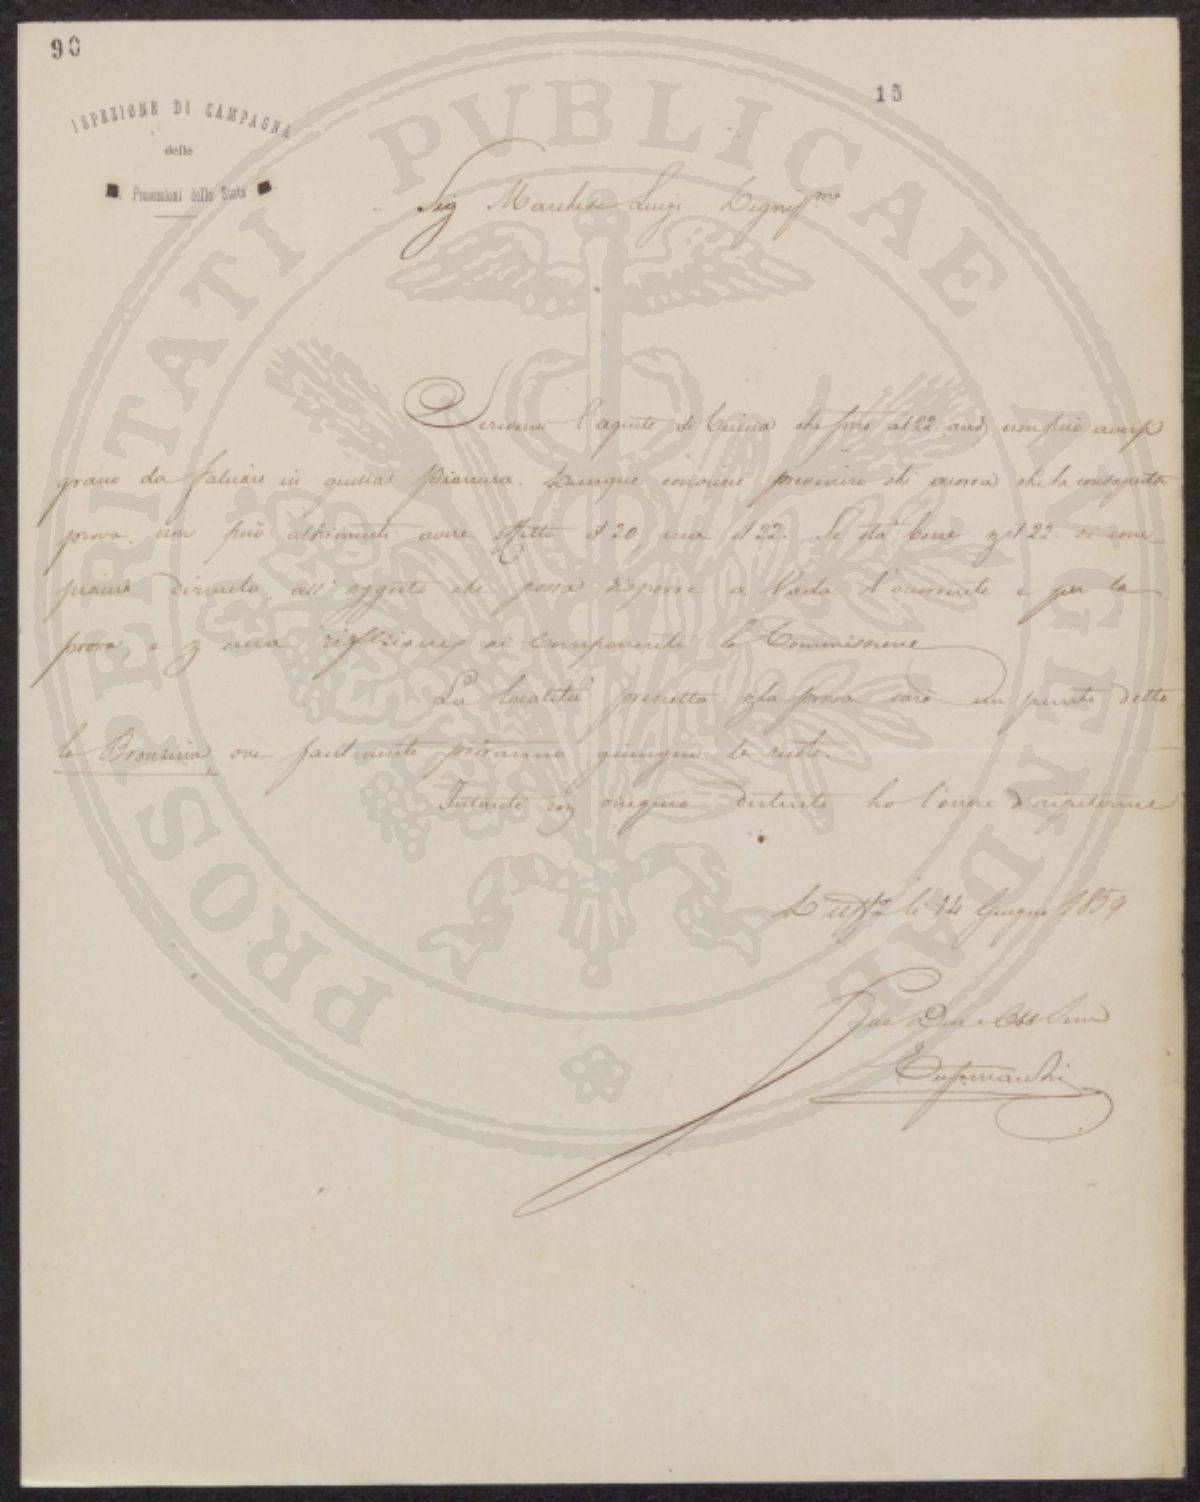 90
15
ISPEZIONE DI CAMPAGNA
delle
Possessioni dello Stato
Sig Marchese Luigi Degniss.mo
Scrivemi l'agente di Cecina che fino al 22 and. non può aversi
grano da falciare in quella Pianura. Dunque conviene prevenire chi occorra che la consaputa
prova, non può altrimenti avere effetto il 20, ma il 22. Se sta bene il 22
dirmelo all'oggetto che possa disporre a Vada l'occorrente e per la
prova, e una refezione ai componenti la Commissione
La località prescelta la prova sarà un punto detto
la ove facilmente potranno giungere le ruote.
Intanto con ossequio distinto ho l'onore di ripetermi
li 14 Giugno 1859
Suo Dev e Obb Serv
PROSPERITATI PUBLICAE AUGENDAE